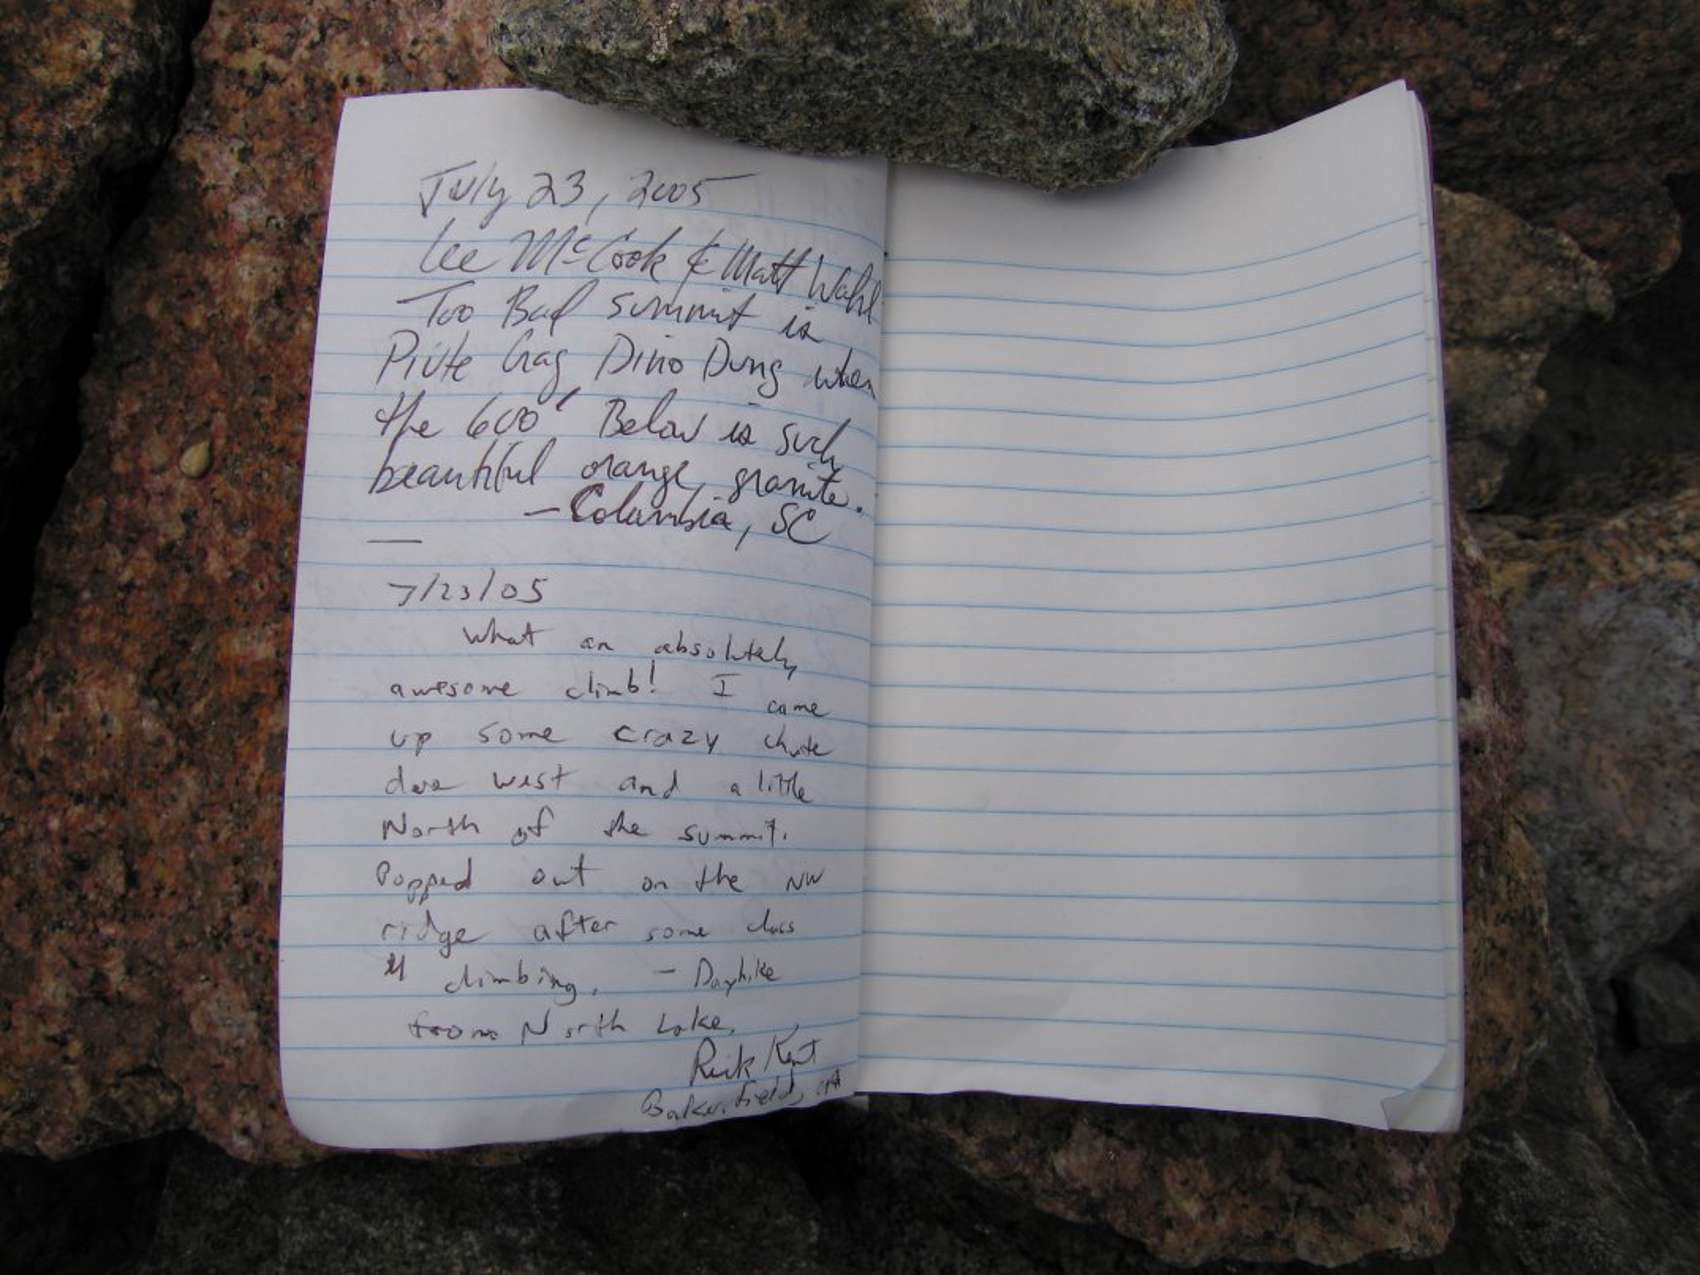 July 23, 2005
Lee McCook & Matt Wahl
Too Bad summit is
Piute Crag Dino Dung when
the 600' Below is such
beautiful orange granite.
- Columbia, SC
7/23/05
What an absolutely
awesome climb! I came
up some crazy chute
due west and a little
North of the summit.
Popped out on the NW
ridge after some class
4 climbing. - Dayhike
from North Lake.
Rick Kent
Bakersfield, CA